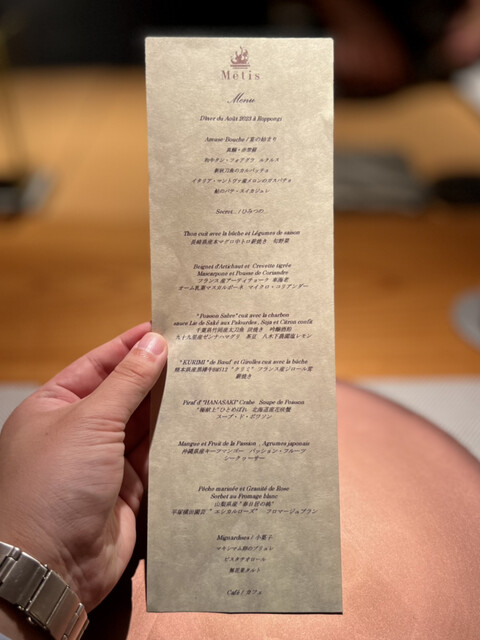 Métis
Menu
Dîner du Août 2023 à Roppongi
Amuse Bouche / 宴の始まり
和牛タン・フォアグラ ルクルス
新秋刀魚のカルパッチョ
イタリア・マントヴァ産メロンのガスパチョ
鮎のパテ・スイカジュレ
Secret... / ひみつの...
Thon cuit avec la bûche et Légumes de saison
長崎県産本マグロ中トロ薪焼き 旬野菜
Beignet d'Artichaut et Crevette tigrée
Mascarpone et Pousse de Coriandre
フランス産アーティチョーク 車海老
オーム乳業マスカルポーネ マイクロ・コリアンダー
"Poisson Sabre" cuit avec la charbon
sauce Lie de Saké aux Palourdes, Soja et Citron confit
千葉県竹岡産太刀魚 炭焼き 吟醸酒粕
九十九里産ゼンナハマグリ 茶豆 八木下農園塩レモン
"KUKIMI" de Bœuf et Girolles cuit avec la bûche
フランス産ジロール茸
薪焼き
Piraf d'"HANASAKI" Crabe Soupe de Poisson
"極献上" ひとめぼれ 北海道産花咲蟹
スープ・ド・ポワソン
Mangue et Fruit de la Passion , Agrumes japonais
沖縄県産キーツマンゴー パッション・フルーツ
シークヮーサー
Pêche marinée et Granité de Rose
Sorbet au Fromage blanc
山梨県産 "春日居の桃"
平塚横田園芸 "エシカルローズ" フロマージュブラン
Mignardises / 小菓子
マキシマム卵のブリュレ
ピスタチオロール
無花果タルト
Café / カフェ